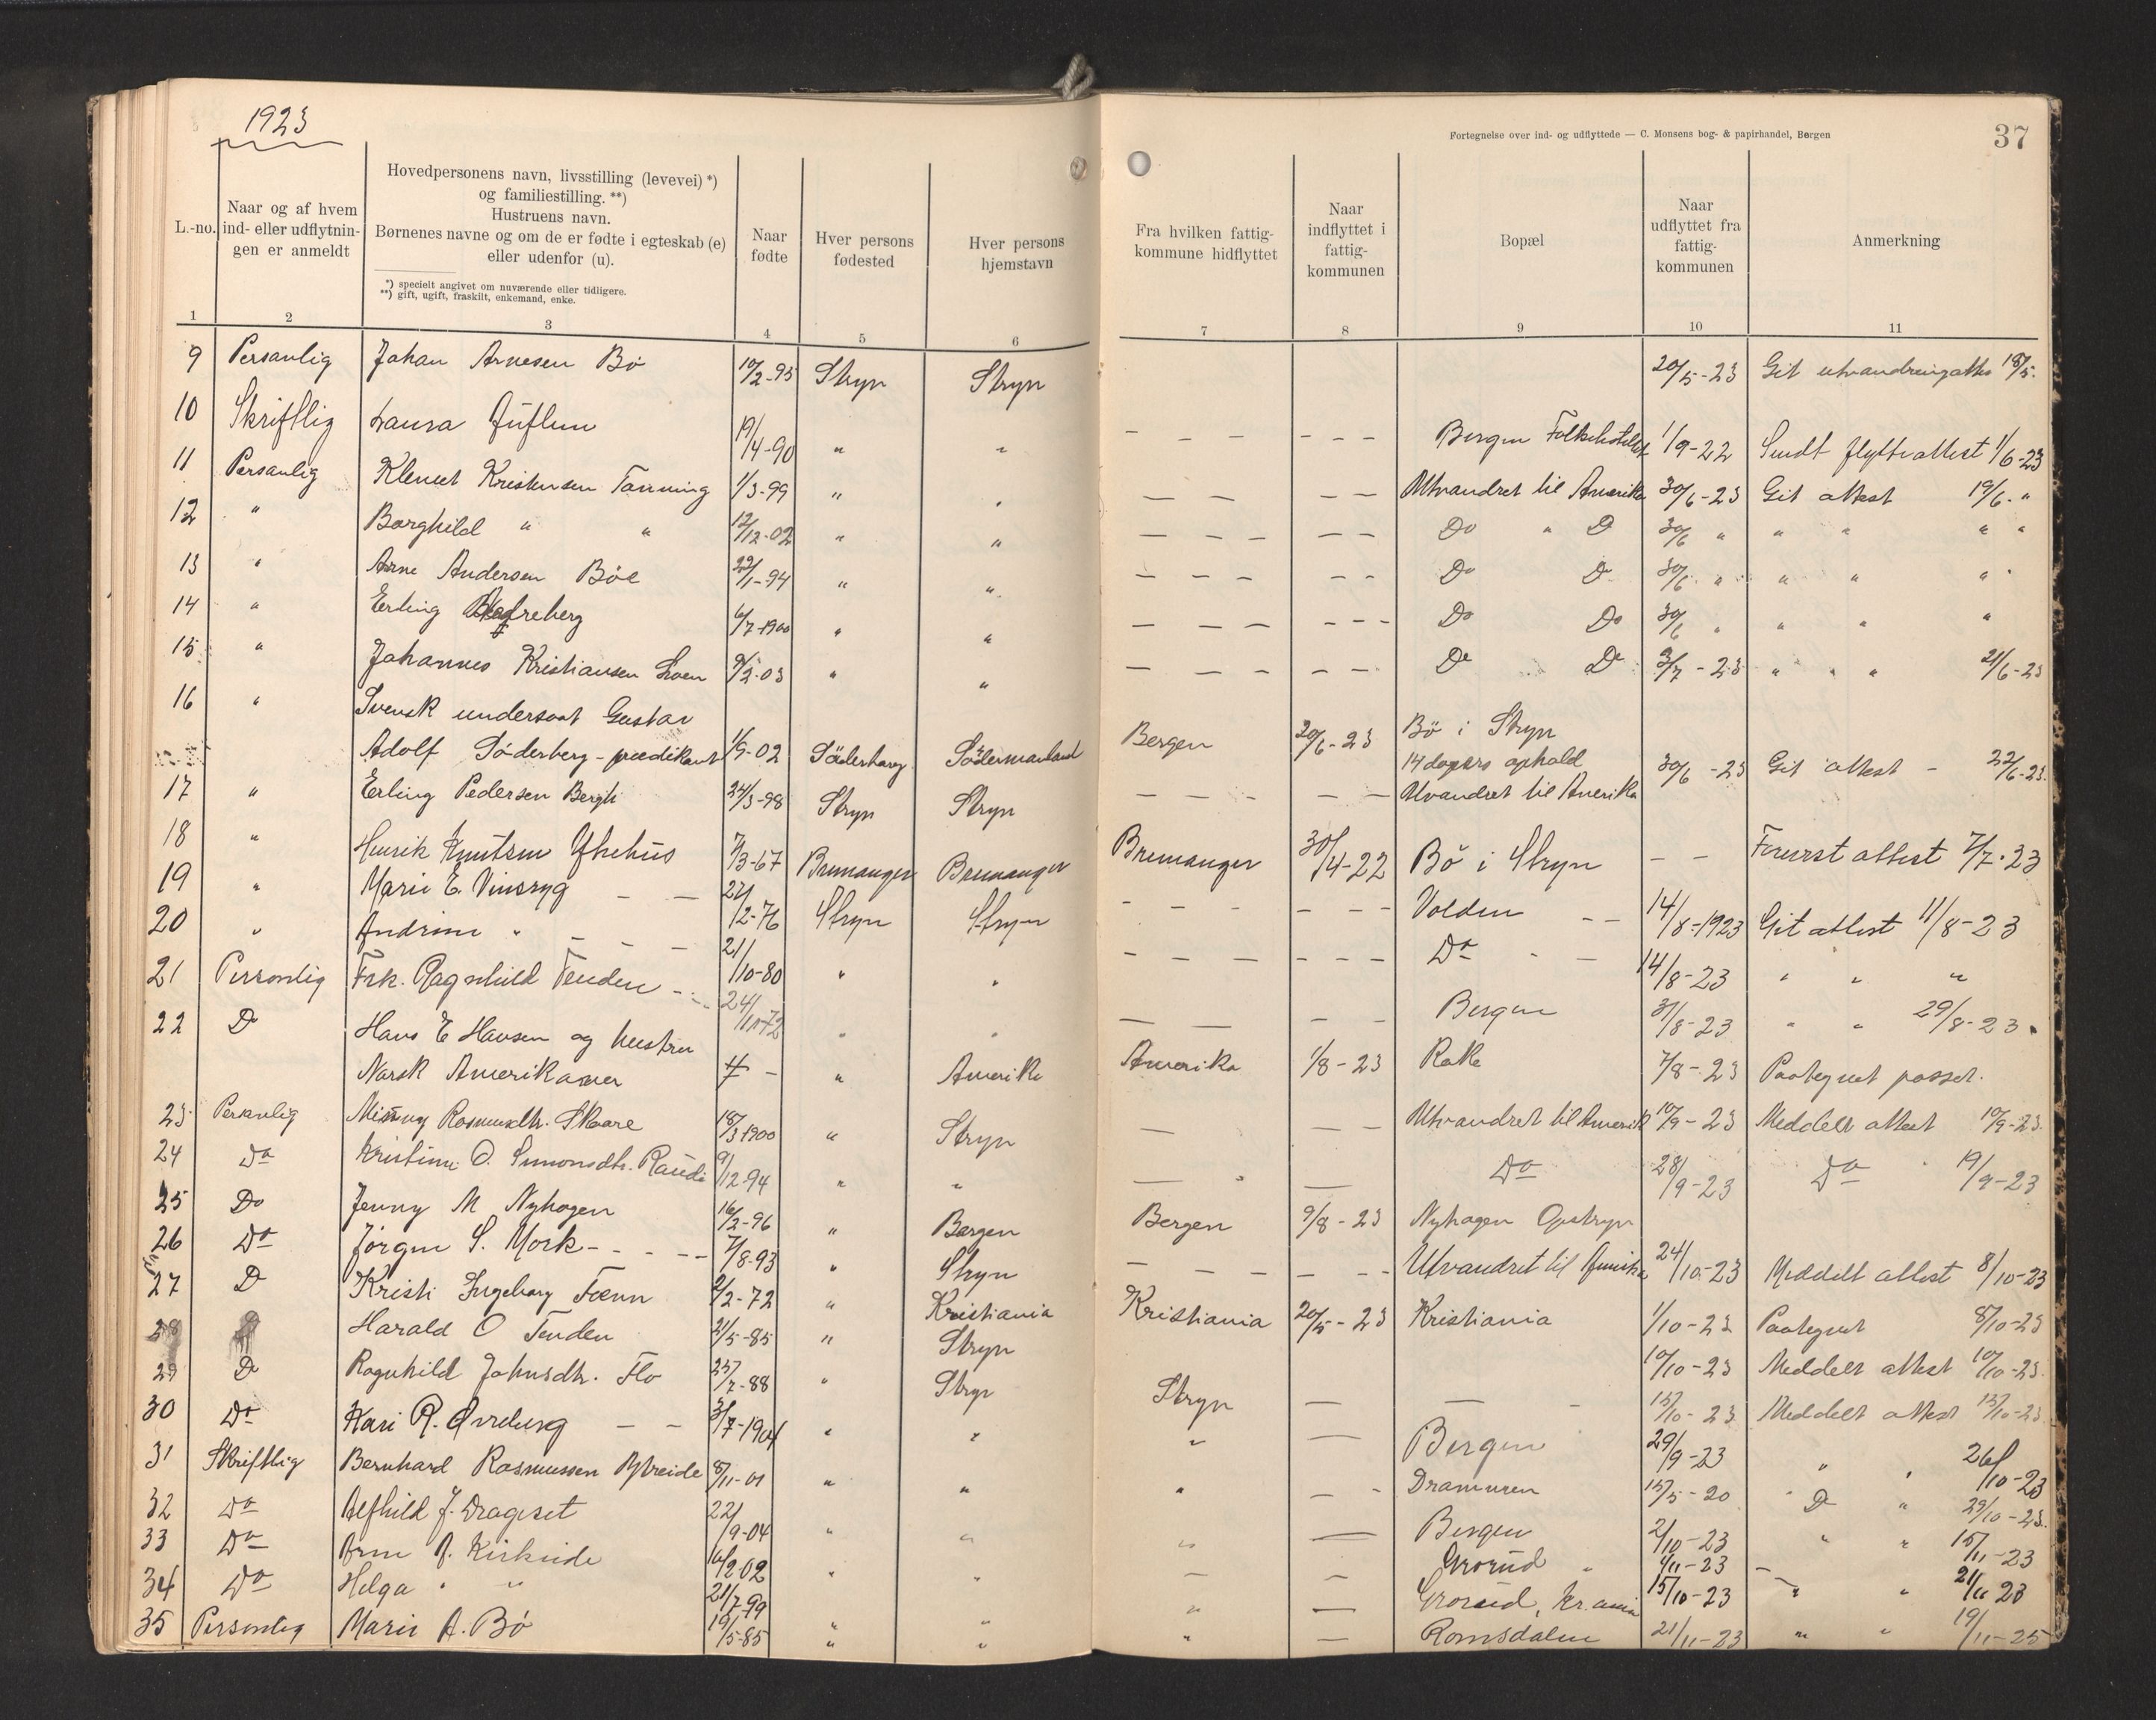 1923
Fortegnelse over ind- og udflyttede — C. Monsens bog- & papirhandel, Bergen
37
L.-no.
Naar og af hvem
ind- eller udflytnin-
gen er anmeldt
Hovedpersonens navn, livsstilling (levevei) *)
og familiestilling. **)
Hustruens navn.
Børnenes navne og om de er fødte i egteskab (e)
eller udenfor (u).
*) specielt angivet om nuværende eller tidligere.
**) gift, ugift, fraskilt, enkemand, enke.
Naar
fødte
Hver persons
fødested
Hver persons
hjemstavn
Fra hvilken fattig-
kommune hidflyttet
Naar
indflyttet i
fattig-
kommunen
Bopæl
Naar
udflyttet fra
fattig-
kommunen
Anmerkning
1 2 3 4 5 6 7 8 9 10 11
9 Personlig Johan Arnesen Bö 10/2-95 Stryn Stryn 20/5-23 Git utvandringsattes 18/5.
10 Skriftlig Laura 19/4-90 " " – – – – – – Bergen 1/9-22 Sendt flytteattest 1/6-23
11 Personlig Klemet Kristensen Tonning 1/3-99 " " — — — — Utvandret til Amerika 30/6-23 Git attest 19/6. "
12 " Borghild " " 12/12-02 " " — — — — — Do " D 30/6 " " " " "
13 " Arne Andersen Böe 22/1-94 " " — — — — — Do D 30/6 " " " "
14 " Erling 6/7-1900 " " — — — — — — Do Do 30/6 " " " "
15 " Johannes Kristiansen Loen 9/2-03 " " — — — — — Do Do 3/7-23 " " " 21/6-23
16 " Svensk undersaat Gustav
Adolf Söderberg - prædikant 1/9-02 Söderberg Södermanland Bergen 20/6-23 Bö i Stryn
14 dagers ophold 30/6-23 Git attest – 22/6-23.
17 " Erling Pedersen Bergh 24/3-98 Stryn Stryn – – – – – Utvandret til Amerika
18 " Henrik Knutsen Ytrehus 7/3-67 Bremanger Bremanger Bremanger 30/4-22 Bö i Stryn – – attest 7/7-23
19 " Marie E. Vinsryg – – 27/2-76 Stryn Stryn – – – – – – – Volden – – 14/8-1923 Git attest 11/8-23
20 " Andrine " – – – 21/10-80 " " – – – – – – – Do – – 14/8-23 " " "
21 Personlig Frk. Ragnhild Tenden 24/10-72 " " — — – – Bergen 31/8-23 " " 29/8-23.
22 D Hans E Hansen og hustru
Norsk Amerikaner " Amerika Amerika 1/8-23 Rake 7/8-23 Paategnet passet.
23 Personlig Rasmusdtr. Skaare 18/3 1900 " Stryn — — — Utvandret til Amerik 10/9-23 Meddelt attest 10/9-23.
24 Do Kristine O. Simonsdtr. Raudi 9/12-94 " " — " — Do 28/9-23 Do 19/9-23
25 Do Jenny M Nyhagen 16/2-96 " Bergen Bergen 9/8-23 Nyhagen Opstryn
26 Do Jörgen S. Mork 7/8-93 " Stryn – – – – – – Utvandret til Amerika 24/10-23 Meddelt attest 8/10-23
27 D Kristi Ingeborg Tænn 2/2-72 " Kristiania Kristiania 20/5-23 Kristiania 1/10-23 Paategnet 8/10-23
28 Harald O Tenden 21/5-85 " Stryn 10/10-23 Meddelt attest 10/10-23.
29 D Ragnhild Johnsdtr. Flo 25/7-88 " Stryn Stryn — — – 15/10-23 Meddelt attest 15/10-23.
30 Do Kari R. Övreberg – – 3/7-1904 " " " — Bergen 29/9-23 " " 26/10-23
31 Skriftlig Bernhard Rasmussen Ytreide 8/11-01 " " " – – Drammen 15/5-20 D " 29/10-23.
32 Do Alfhild J. Drageset 22/9-04 " " " — Bergen 2/10-23 " " 15/11-23
33 Do Arne A. Kirkeide 16/2 02 " " – – Grorud " 4/11-23 –
34 Do Helga " " 21/7-99 " " " — Grorud, Kr.ania 15/10-23 " " 21/11 23
35 Personlig Marie A. Bö 19/5-85 " " " — Romsdalen 21/11-23 " " 19/11-25